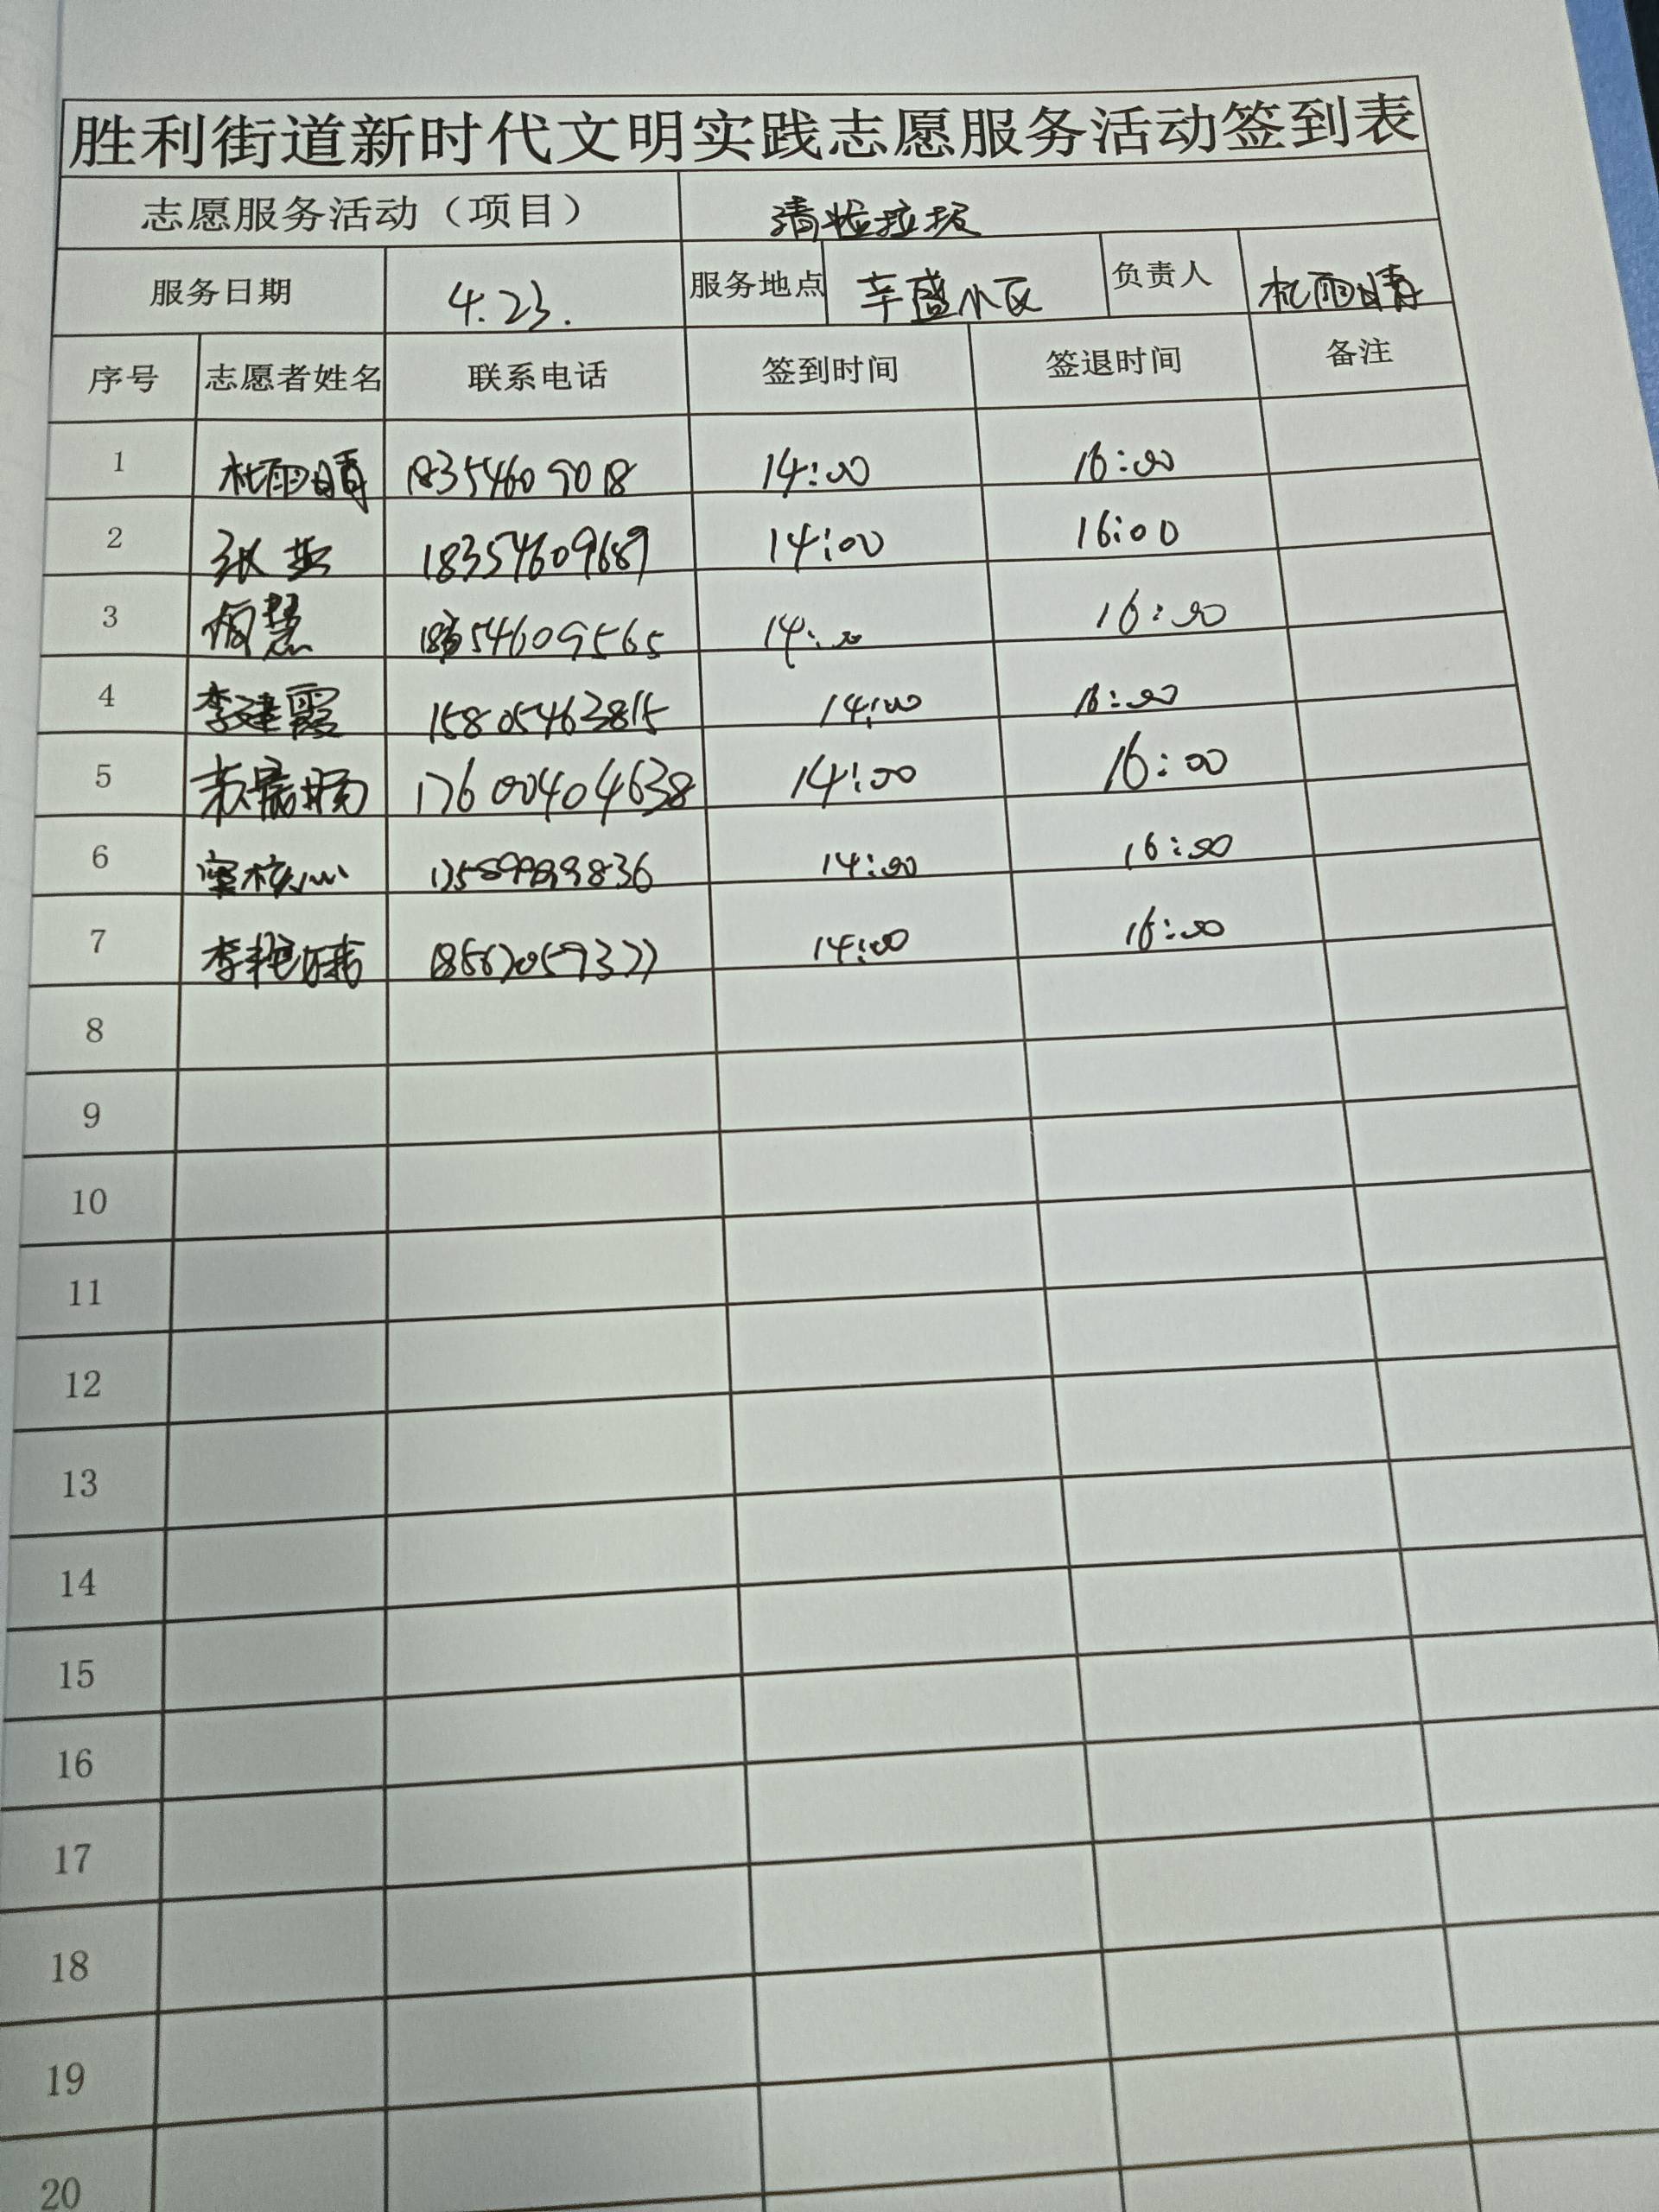 胜利街道新时代文明实践志愿服务活动签到表
志愿服务活动（项目） 清捡垃圾
服务日期 4.23. 服务地点 辛盛小区 负责人 杜雨晴
序号 志愿者姓名 联系电话 签到时间 签退时间 备注
1 杜雨晴 18354609018 14:00 16:00
2 张燕 18354609689 14:00 16:00
3 18354609565 14:00 16:00
4 李建霞 15805463815 14:00 16:00
5 17600404638 14:00 16:00
6 14:00 16:00
7 14:00 16:00
8
9
10
11
12
13
14
15
16
17
18
19
20